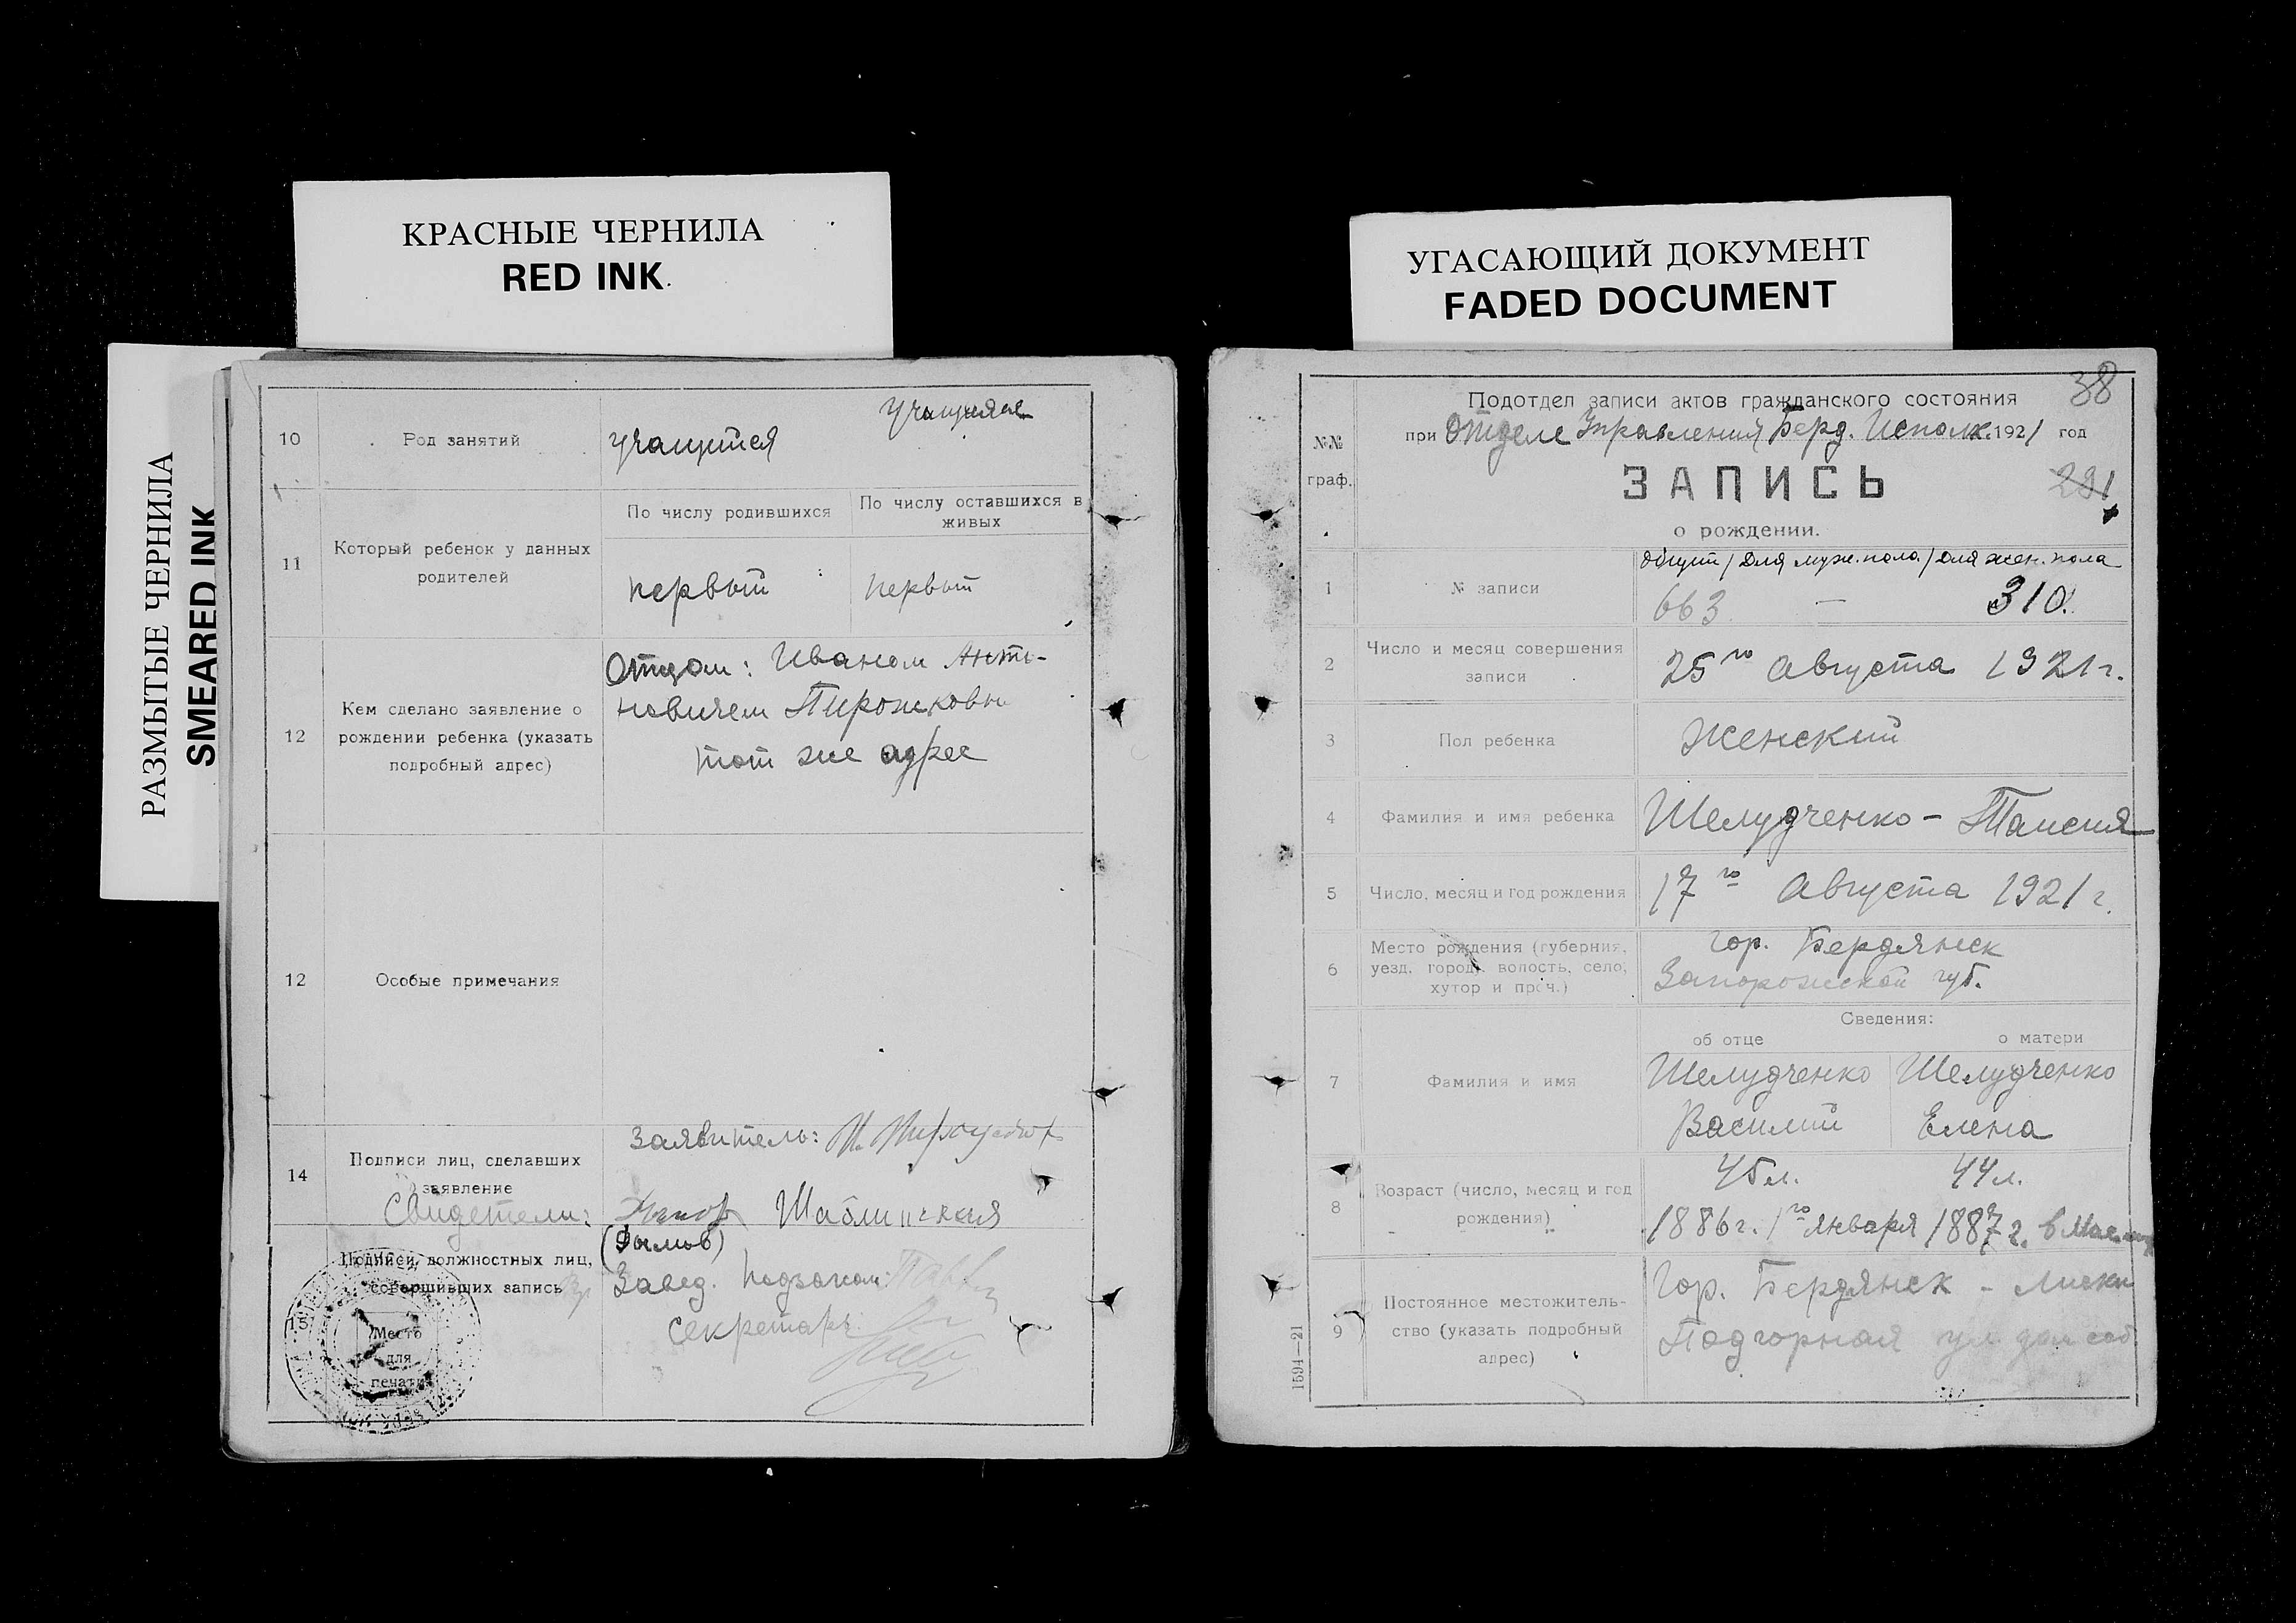 КРАСНЫЕ ЧЕРНИЛА
RED INK
РАЗМЫТЫЕ ЧЕРНИЛА
SMEARED INK
10 Род занятий учащийся учащаяся
11 Который ребенок у данных родителей
По числу родившихся
По числу оставшихся в живых
первый первый
12 Кем сделано заявление о рождении ребенка (указать подробный адрес)
Отцом: Иваном Анто-
новичем Пирожковым
тот же адрес
12 Особые примечания
14 Подписи лиц, сделавших заявление
Заявитель:
Свидетели: Шаблинская
15 Подписи должностных лиц, совершивших запись
Завед. Подзагсом:
Секретарь
Место
для
печати
УГАСАЮЩИЙ ДОКУМЕНТ
FADED DOCUMENT
38
Подотдел записи актов гражданского состояния
№№ граф.
при Отделе Управления Берд. Исполк. 1921 год
ЗАПИСЬ
291
о рождении.
общий / Для муж. пола / Для жен. пола
1 № записи 663 — 310.
2 Число и месяц совершения записи 25го Августа 1921 г.
3 Пол ребенка Женский
4 Фамилия и имя ребенка Шелудченко - Таисия
5 Число, месяц и год рождения 17го Августа 1921 г.
6 Место рождения (губерния, уезд, город, волость, село, хутор и проч.)
гор. Бердянск
Запорожской губ.
Сведения:
об отце о матери
7 Фамилия и имя
Шелудченко Шелудченко
Василий Елена
8 Возраст (число, месяц и год рождения)
45 л. 44 л.
1886 г. 1го января 1887 г. в Мае
9 Постоянное местожитель-
ство (указать подробный
адрес)
Гор. Бердянск - Лиски
Подгорная ул. дом соб.
1594—21